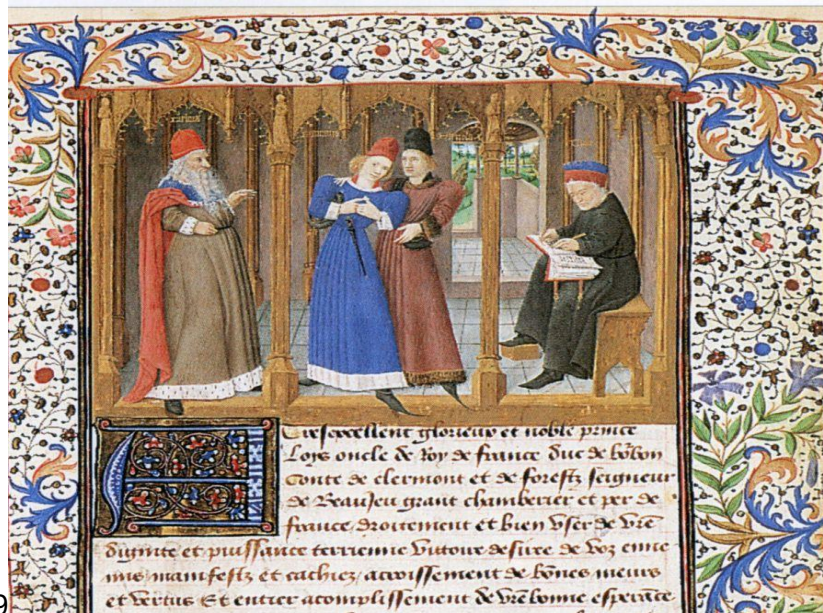 Tresexcellent glorieux et noble prince
Loys oncle de Roy de france Duc de bo͂bon
Conte de clermont et de forestz seigneur
de Beaujeu grant chamberier et per de
france, droitement et bien vser de vr͂e
dignite et puissance terrienne victoire desiree de voz enne
mis manifestz et cachiez, acroissement de bo͂nes meurs
et vertus Et entier acomplissement de vr͂e bonne esperance
9